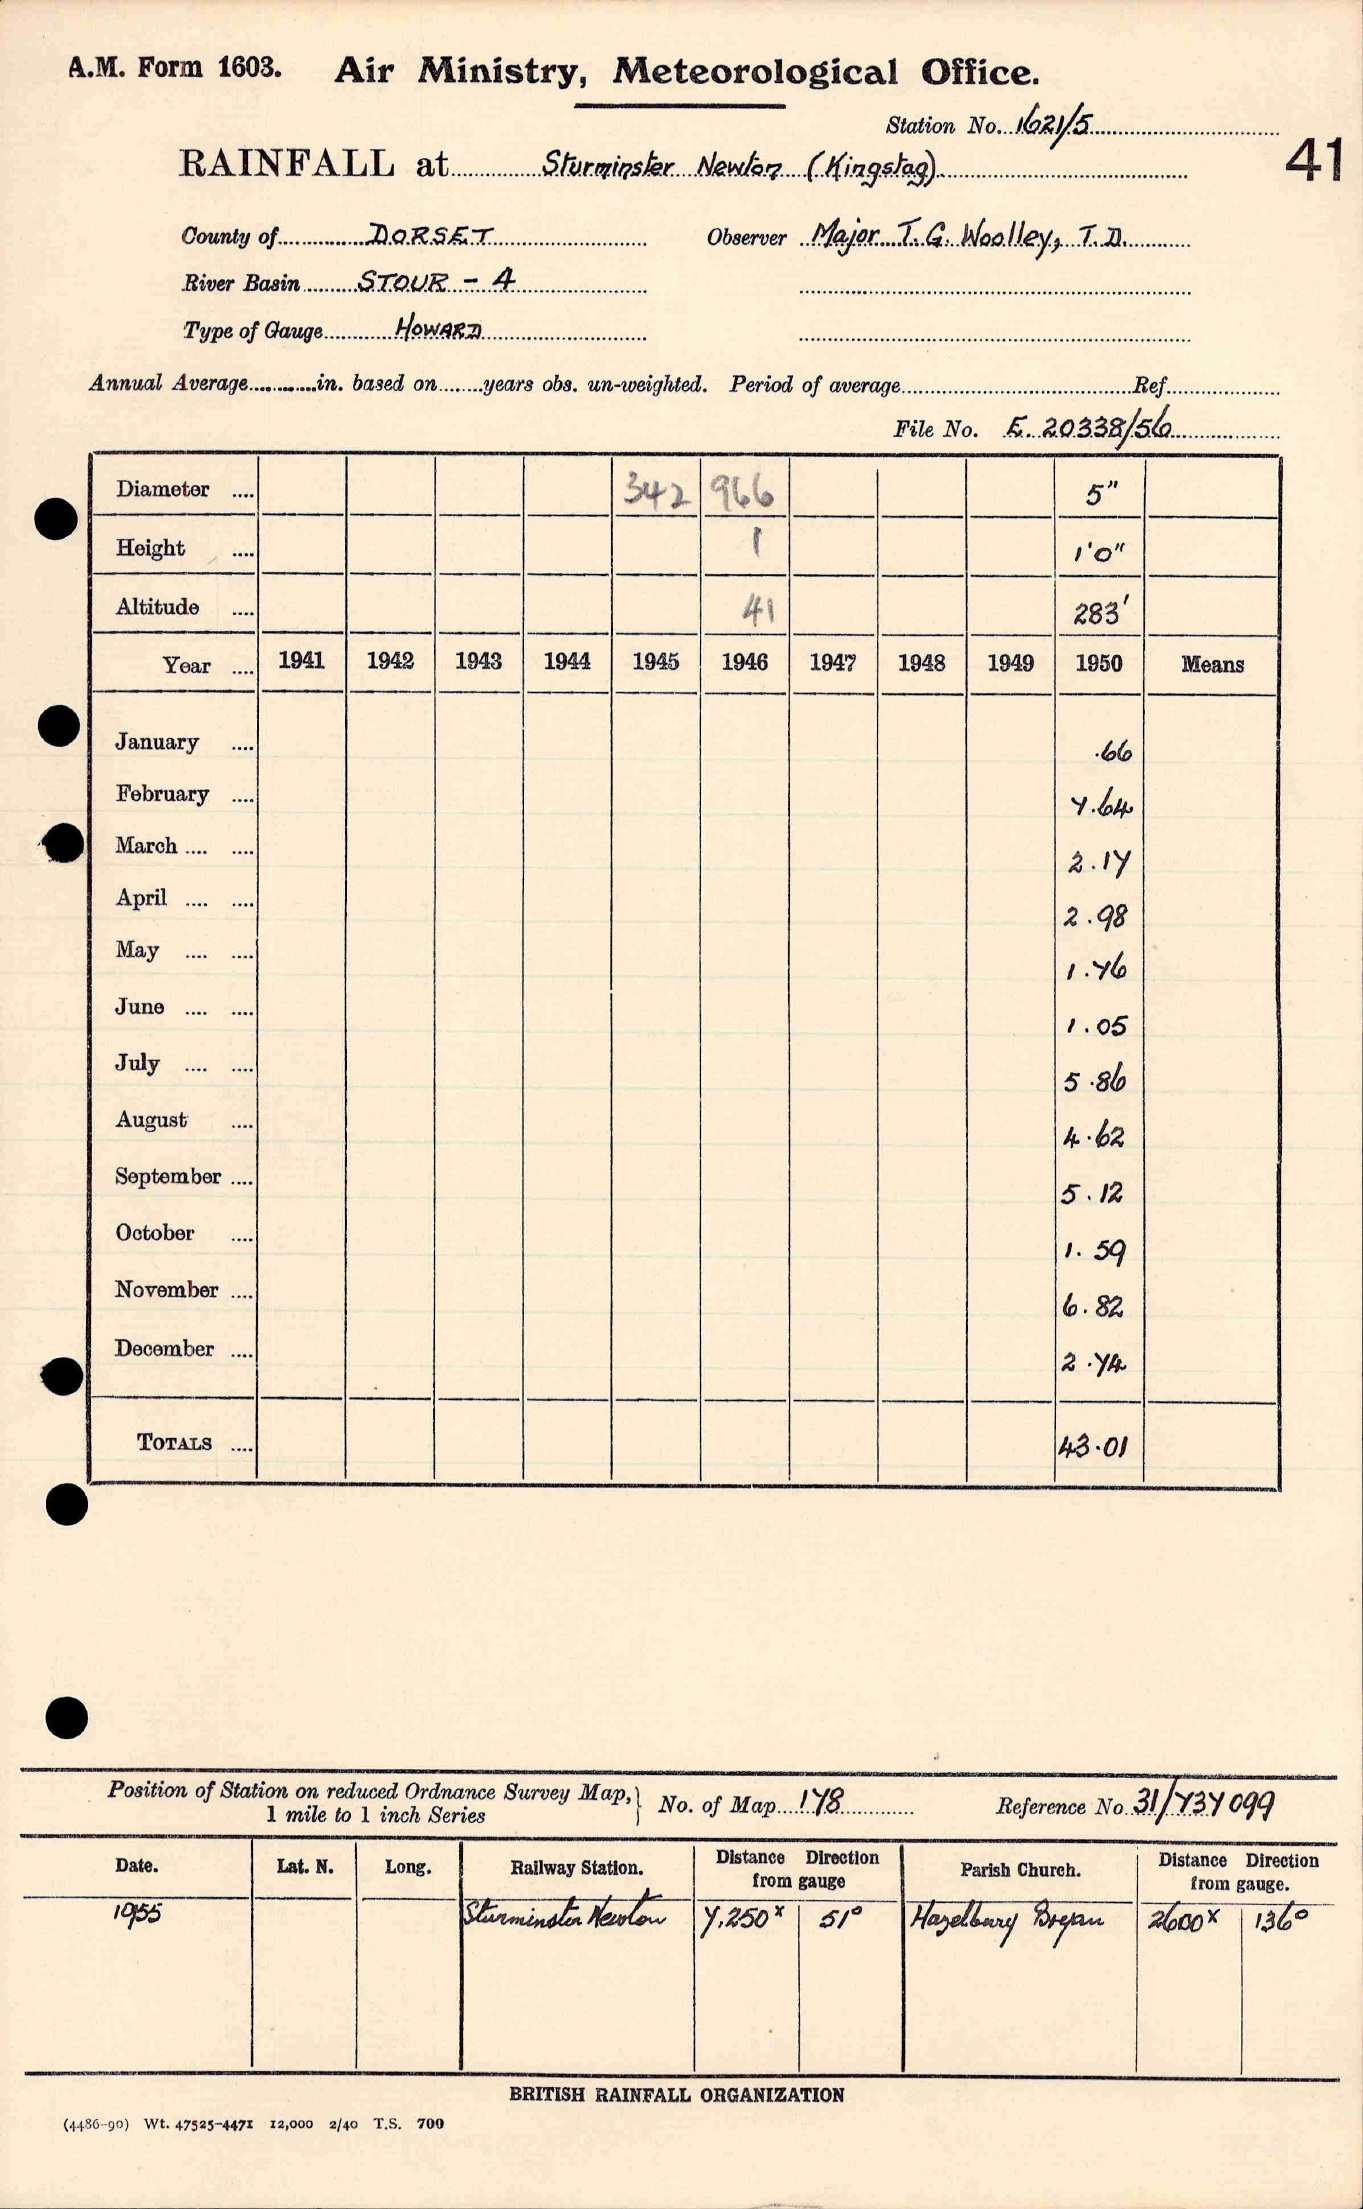 A.M. Form 1603. Air Ministry, Meteorological Office.
Station No. 1621/5
41
RAINFALL at Sturminster Newton (Kingstag)
County of DORSET Observer Major T. G. Woolley, T.D.
River Basin STOUR - 4
Type of Gauge HOWARD
Annual Average............in. based on.......years obs. un-weighted. Period of average.......... Ref..........
File No. E. 20338/56
Diameter .... 342 966 5"
Height .... 1 1'0"
Altitude .... 41 283'
Year .... 1941 1942 1943 1944 1945 1946 1947 1948 1949 1950 Means
January .... .66
February .... 7.64
March .... .... 2.17
April .... .... 2.98
May .... .... 1.76
June .... .... 1.05
July .... .... 5.86
August .... 4.62
September .... 5.12
October .... 1.59
November .... 6.82
December .... 2.74
TOTALS .... 43.01
Position of Station on reduced Ordnance Survey Map,
1 mile to 1 inch Series } No. of Map 178 Reference No. 31/737099
Date. Lat. N. Long. Railway Station. Distance Direction from gauge Parish Church. Distance Direction from gauge.
1955 Sturminster Newton 7,250x 51° Hazelbury Bryan 2600x 136°
BRITISH RAINFALL ORGANIZATION
(4486-90) Wt. 47525-4471 12,000 2/40 T.S. 700